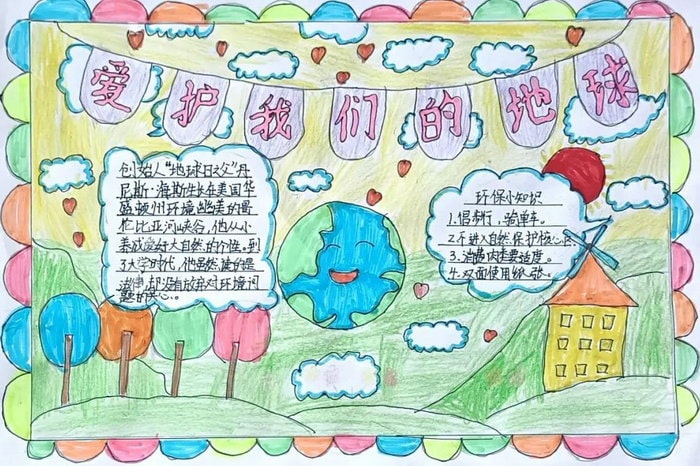 爱护我们的地球
创始人“地球日之父”丹
尼斯·海斯生长在美国华
盛顿州环境幽美的哥
伦比亚河峡谷,他从小
养成爱好大自然的个性。到
了大学时代,他虽然读的是
法律,却没有放弃对环境问
题的关心。
环保小知识
1.倡步行,骑单车。
2.不进入自然保护核心区。
3.消费肉类要适度。
4.双面使用纸张。